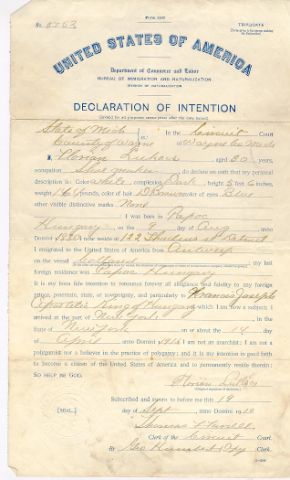 TRIPLICATE
No. 5763
UNITED STATES OF AMERICA
Department of Commerce and Labor
BUREAU OF IMMIGRATION AND NATURALIZATION
DIVISION OF NATURALIZATION
DECLARATION OF INTENTION
(Invalid for all purposes seven years after the date hereof)
State of Mich In the Circuit Court
County of Wayne ss: of Wayne Co Mich
I, Florian aged 30 years,
occupation do declare on oath that my personal
description is: Color white, complexion Dark, height 5 feet 6 inches,
weight pounds, color of hair Brown, color of eyes Blue
other visible distinctive marks None
I was born in Papoc
Hungary on the 9 day of Aug
Domini 1880; I now reside at 122 st Detroit
I emigrated to the United States of America from Antwerp
on the vessel ; my last
foreign residence was Papoc Hungary
It is my bona fide intention to renounce forever all allegiance and fidelity to any foreign
prince, potentate, state, or sovereignty, and particularly to Francis Joseph
Apostolic King of Hungary, of which I am now a subject; I
arrived at the port of New York, in the
State of New York on or about the 14 day
of April, anno Domini; I am not an anarchist; I am not a
polygamist nor a believer in the practice of polygamy; and it is my intention in good faith
to become a citizen of the United States of America and to permanently reside therein:
SO HELP ME GOD.
Florian
Subscribed and sworn to before me this 19
[SEAL.] day of Sept, anno Domini 1910
Thomas F. Farrell
Clerk of the Circuit Court.
By Geo Dpy Clerk.